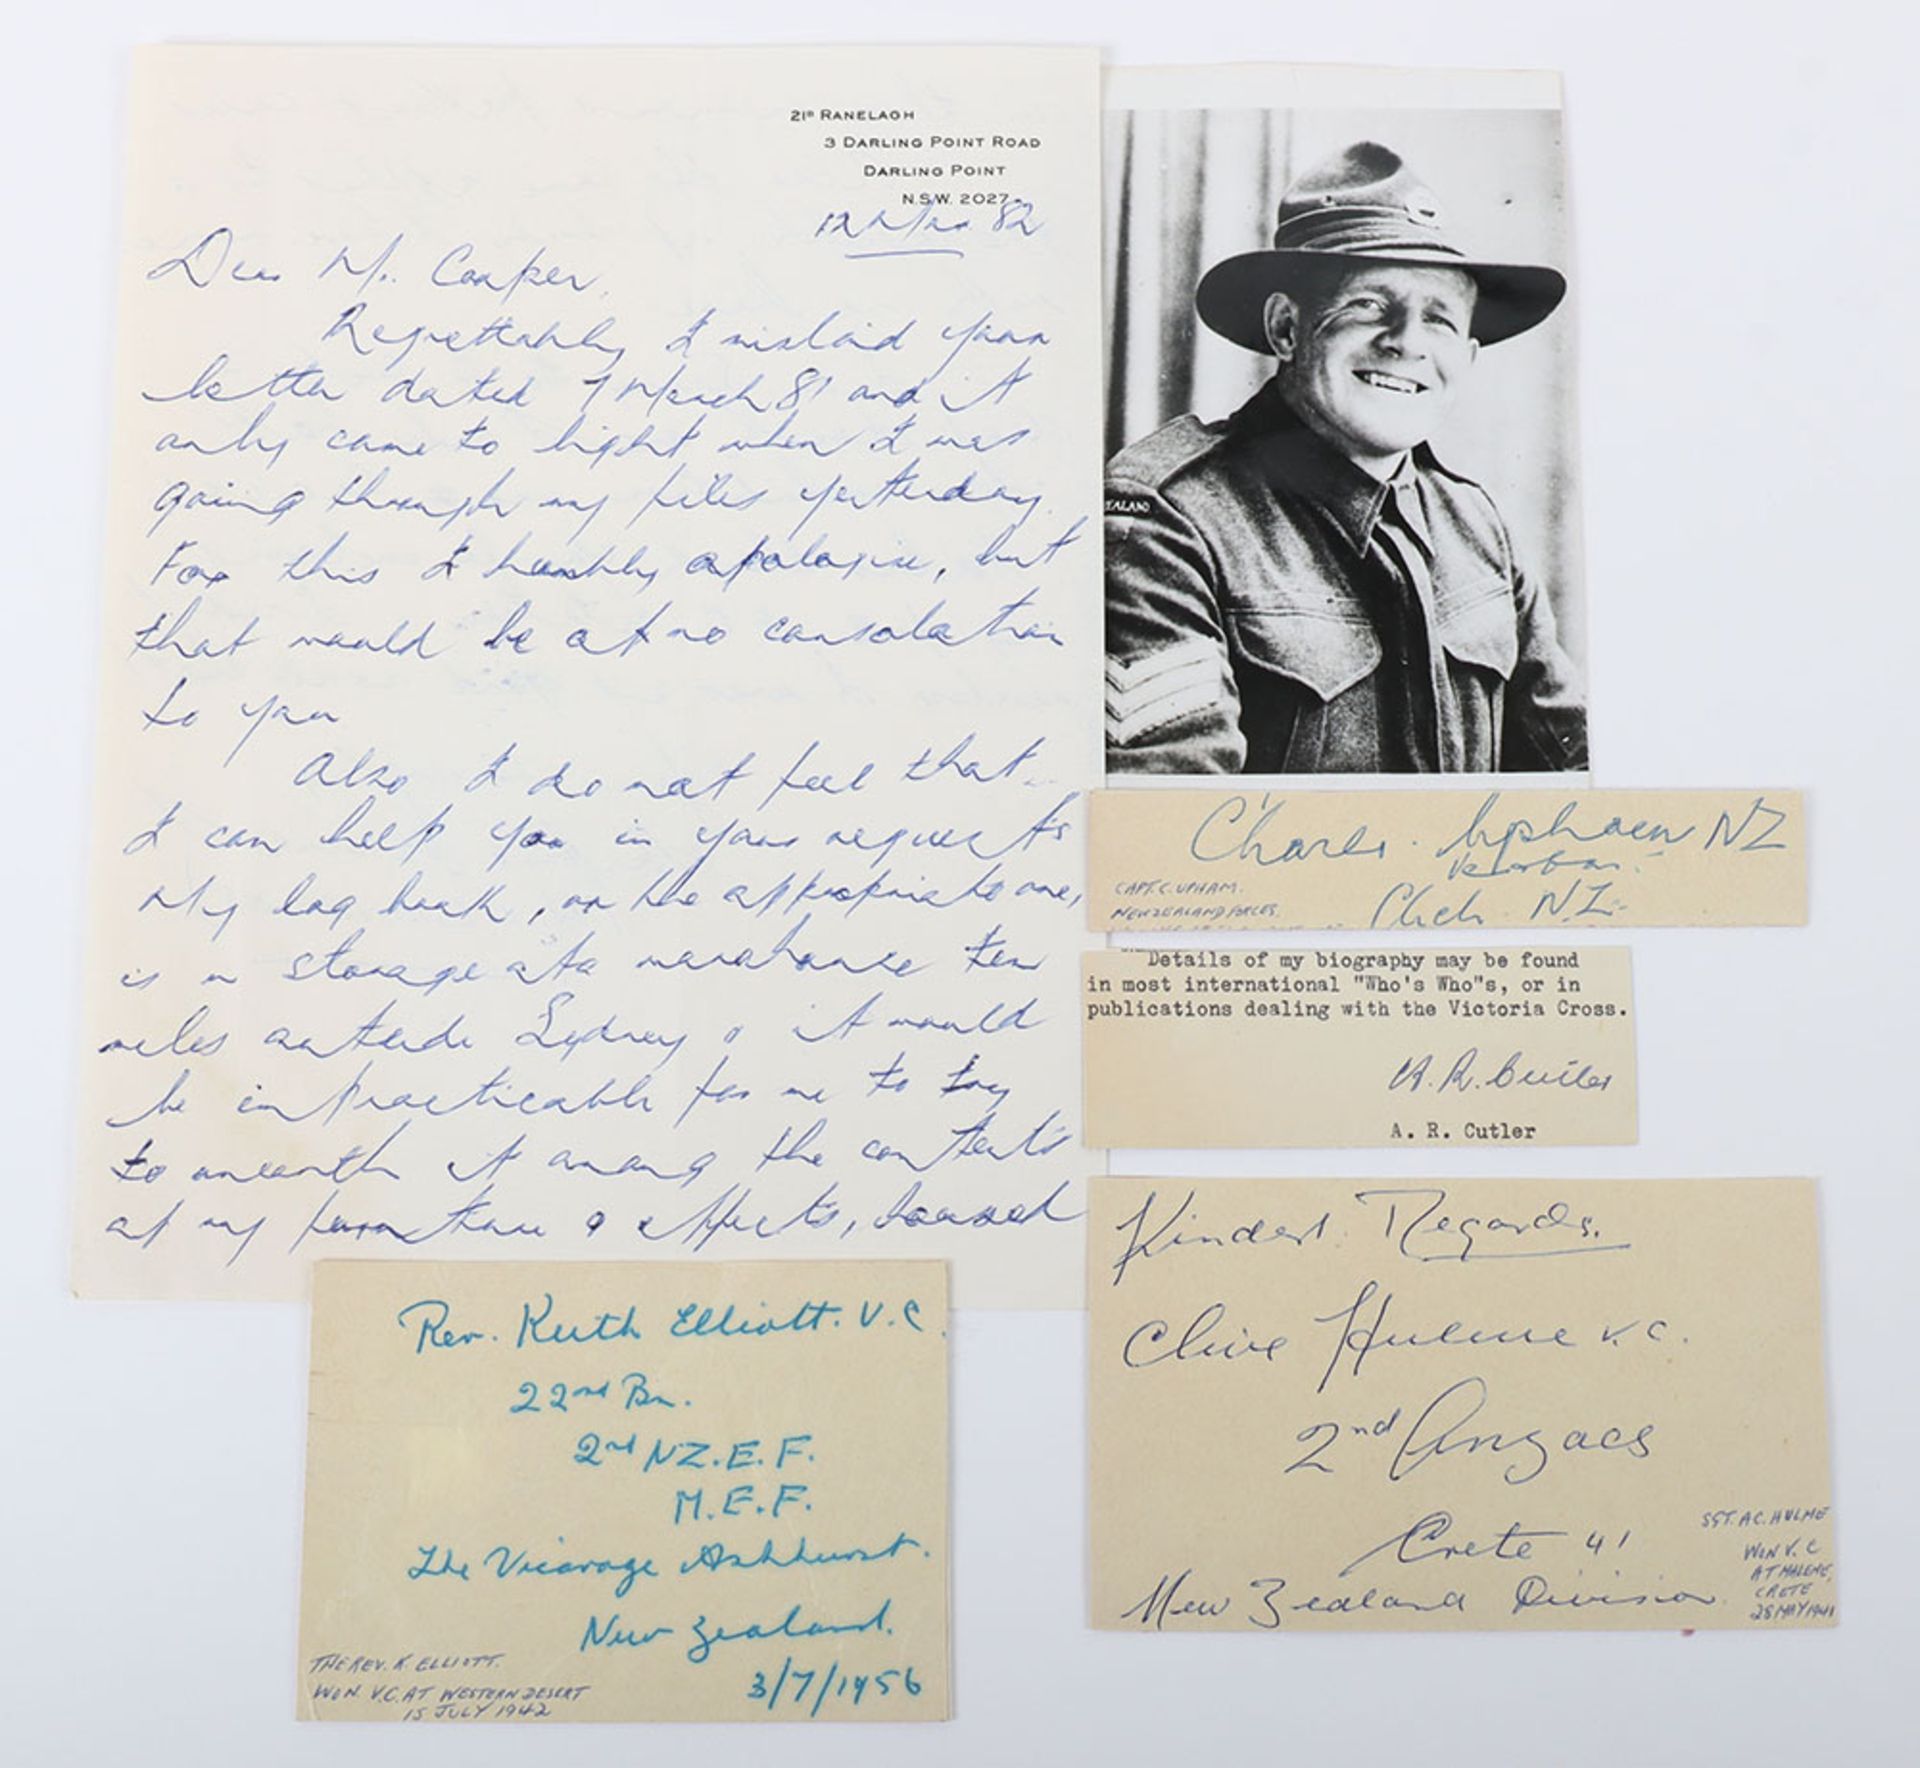 21B RANELAGH
3 DARLING POINT ROAD
DARLING POINT
N.S.W. 2027
12 Mar 82
Dear Mr. Cooper,
Regrettably I mislaid your
letter dated 7 March 81 and it
only came to light when I was
going through my files yesterday.
For this I humbly apologise, but
that would be of no consolation
to you
Also I do not feel that
I can help you in your requests
My log book, or the appropriate one,
is in storage at a warehouse ten
miles outside Sydney & it would
be impracticable for me to try
to unearth it among the contents
of my furniture & effects, housed
EALAND
Charles. Upham NZ
CAPT. C. UPHAM.
NEW ZEALAND FORCES.
Chch. N.Z.
Details of my biography may be found
in most international "Who's Who"s, or in
publications dealing with the Victoria Cross.
A. R. Cutler
A. R. Cutler
Kindest Regards.
Clive Hulme V.C.
2nd Anzacs
Crete 41
New Zealand Division
SGT. A.C. HULME
WON V.C
AT MALEME,
CRETE
28 MAY 1941
Rev. Keith Elliott. V.C.
22nd Bn.
2nd NZ.E.F.
M.E.F.
The Vicarage Ashhurst.
New Zealand.
3/7/1956
THE REV. K. ELLIOTT.
WON V.C. AT WESTERN DESERT
15 JULY 1942